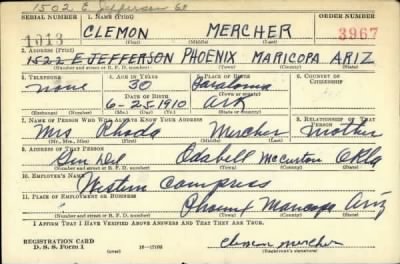 1502 E Jefferson St
SERIAL NUMBER 1. NAME (Print) ORDER NUMBER
1013 CLEMON MERCHER 3967
(First) (Middle) (Last)
2. ADDRESS (Print)
1522 E JEFFERSON PHOENIX MARICOPA ARIZ
(Number and street or R. F. D. number) (Town) (County) (State)
3. TELEPHONE 4. AGE IN YEARS 5. PLACE OF BIRTH 6. COUNTRY OF CITIZENSHIP
none 30
(Town or county)
DATE OF BIRTH
6-25-1910 Ark
(Exchange) (Number) (Mo.) (Day) (Yr.) (State or country)
7. NAME OF PERSON WHO WILL ALWAYS KNOW YOUR ADDRESS 8. RELATIONSHIP OF THAT PERSON
Mrs Rhoda Mercher mother
(Mr., Mrs., Miss) (First) (Middle) (Last)
9. ADDRESS OF THAT PERSON
Gen Del Idabell McCurton Okla
(Number and street or R. F. D. number) (Town) (County) (State)
10. EMPLOYER'S NAME
Western Compress
11. PLACE OF EMPLOYMENT OR BUSINESS
Phoenix Maricopa Ariz
(Number and street or R. F. D. number) (Town) (County) (State)
I AFFIRM THAT I HAVE VERIFIED ABOVE ANSWERS AND THAT THEY ARE TRUE.
REGISTRATION CARD
D. S. S. Form 1
clemon mercher
(Registrant's signature)